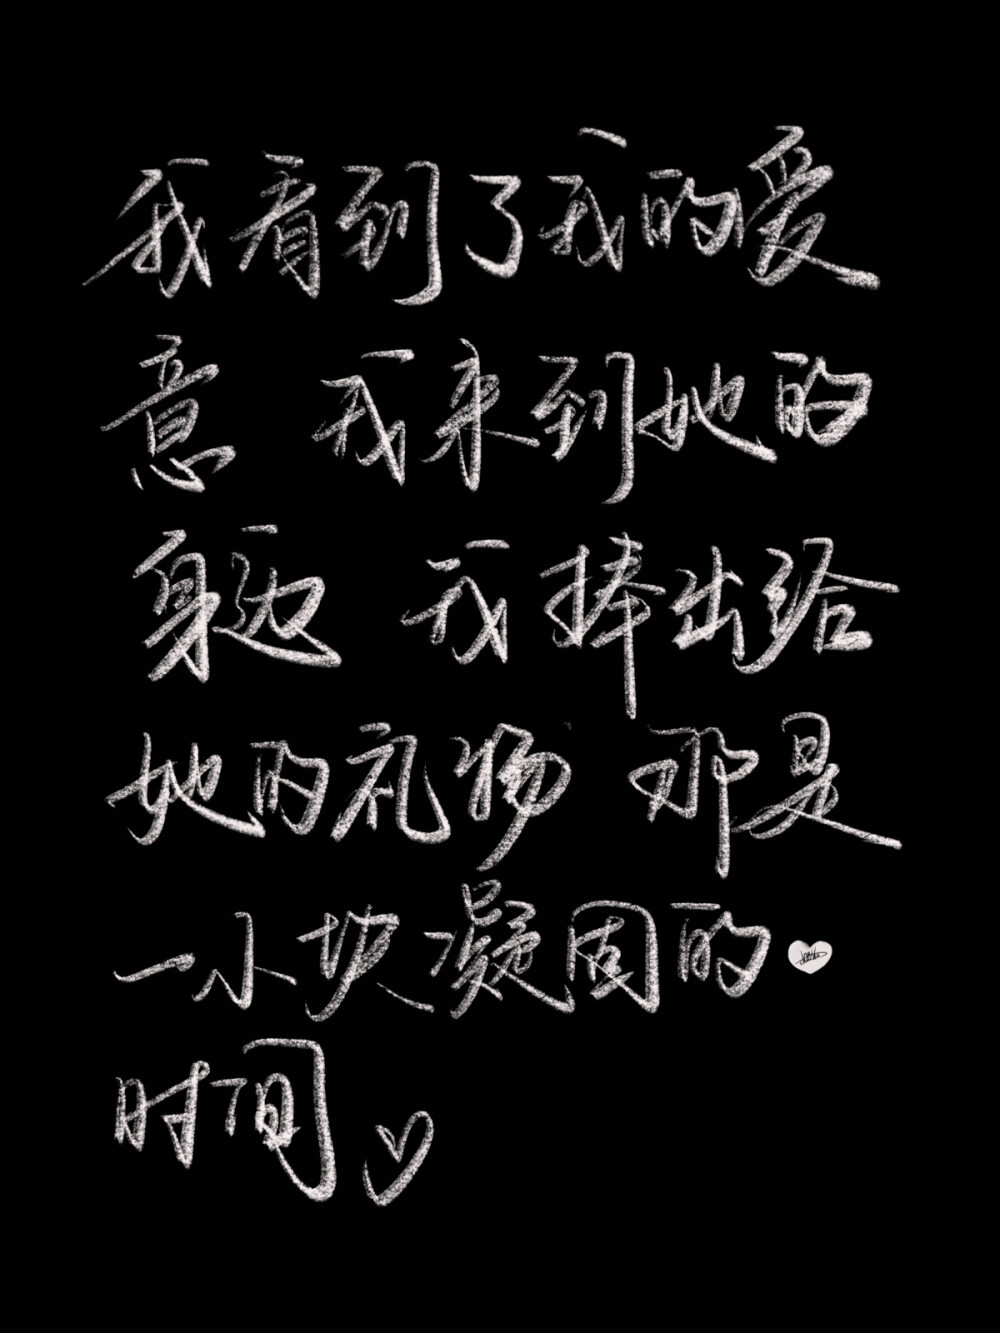 我看到了我的爱
意 我来到她的
身边 我捧出给
她的礼物 那是
一小块凝固的
时间